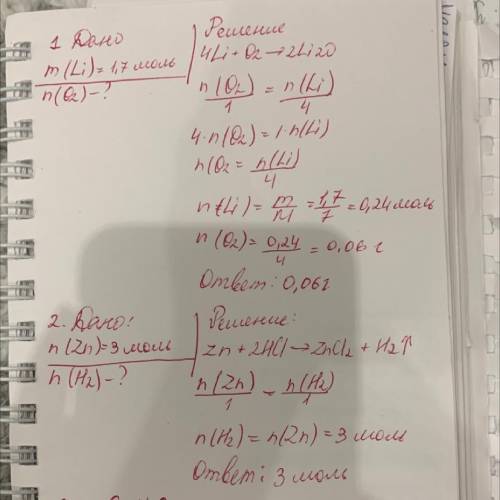 1. Дано
m(Li)=1,7 моль
n(O2)-?
Решение
4Li+O2→2Li2O
n(O2)/1 = n(Li)/4
4·n(O2)=1·n(Li)
n(O2 = n(Li)/4
n(Li) = m/M = 1,7/7 = 0,24 моль
n(O2) = 0,24/4 = 0,06 г
Ответ: 0,06г
2. Дано:
n(Zn)=3 моль
n(H2)-?
Решение:
Zn+2HCl→ZnCl2+H2↑
n(Zn)/1 - n(H2)/1
n(H2)=n(Zn)=3 моль
Ответ: 3 моль